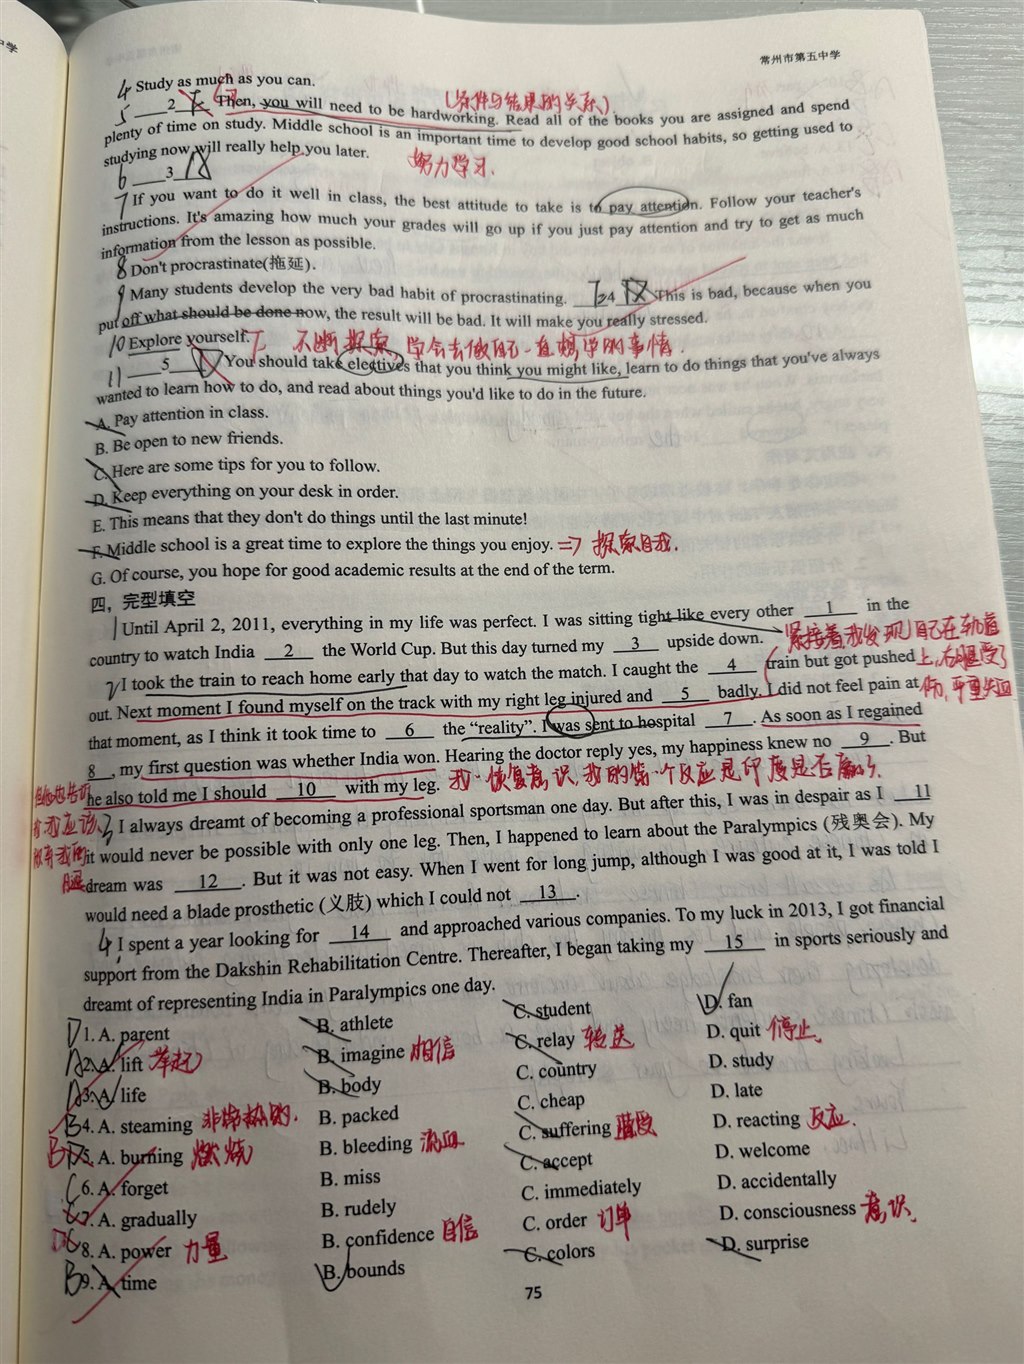 常州市第五中学
4 Study as much as you can.
5 2 Then, you will need to be hardworking. Read all of the books you are assigned and spend
(条件与结果的关系).
plenty of time on study. Middle school is an important time to develop good school habits, so getting used to
studying now will really help you later.
努力学习.
6 3
7 If you want to do it well in class, the best attitude to take is to pay attention. Follow your teacher's
instructions. It's amazing how much your grades will go up if you just pay attention and try to get as much
information from the lesson as possible.
8 Don't procrastinate(拖延).
9 Many students develop the very bad habit of procrastinating. 4 This is bad, because when you
put off what should be done now, the result will be bad. It will make you really stressed.
10 Explore yourself. 不断探索 学会去做自己一直想学的事情.
11 5 You should take electives that you think you might like, learn to do things that you've always
wanted to learn how to do, and read about things you'd like to do in the future.
A. Pay attention in class.
B. Be open to new friends.
C. Here are some tips for you to follow.
D. Keep everything on your desk in order.
E. This means that they don't do things until the last minute!
F. Middle school is a great time to explore the things you enjoy. => 探索自我.
G. Of course, you hope for good academic results at the end of the term.
四，完型填空
1 Until April 2, 2011, everything in my life was perfect. I was sitting tight like every other 1 in the
country to watch India 2 the World Cup. But this day turned my 3 upside down.
紧接着我发现自己在轨道
2 I took the train to reach home early that day to watch the match. I caught the 4 train but got pushed
上,右腿受了
out. Next moment I found myself on the track with my right leg injured and 5 badly. I did not feel pain at
伤,严重失血
that moment, as I think it took time to 6 the “reality”. I was sent to hospital 7 . As soon as I regained
8 , my first question was whether India won. Hearing the doctor reply yes, my happiness knew no 9 . But
he also told me I should 10 with my leg. 我一恢复意识,我的第一个反应是印度是否赢了.
但他也告诉
我应该
3 I always dreamt of becoming a professional sportsman one day. But after this, I was in despair as I 11
it would never be possible with only one leg. Then, I happened to learn about the Paralympics (残奥会). My
dream was 12 . But it was not easy. When I went for long jump, although I was good at it, I was told I
would need a blade prosthetic (义肢) which I could not 13 .
4 I spent a year looking for 14 and approached various companies. To my luck in 2013, I got financial
support from the Dakshin Rehabilitation Centre. Thereafter, I began taking my 15 in sports seriously and
dreamt of representing India in Paralympics one day.
D 1. A. parent B. athlete C. student D. fan
A 2. A. lift 举起 B. imagine 相信 C. relay 转送 D. quit 停止.
A 3. A. life B. body C. country D. study
B 4. A. steaming 非常热的. B. packed C. cheap D. late
B 5. A. burning 燃烧 B. bleeding 流血 C. suffering 遭受 D. reacting 反应.
C 6. A. forget B. miss C. accept D. welcome
C 7. A. gradually B. rudely C. immediately D. accidentally
D 8. A. power 力量 B. confidence 自信 C. order 订单 D. consciousness 意识.
B 9. A. time B. bounds C. colors D. surprise
75